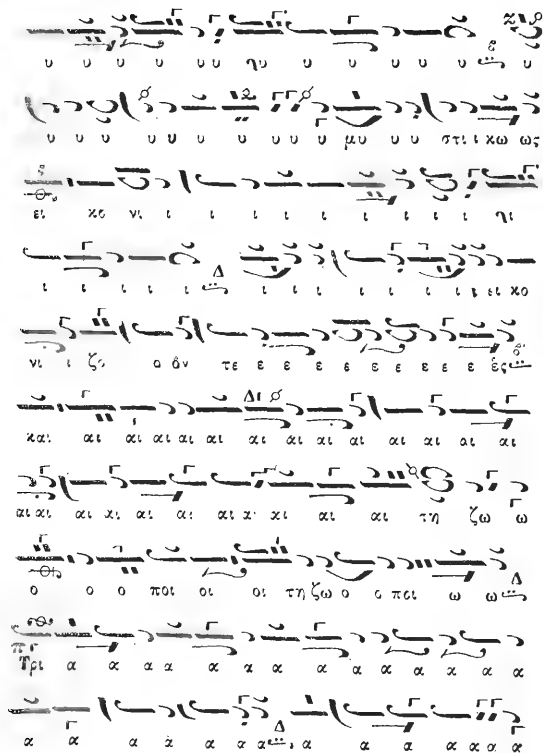 υ υ υ υ υ υ ηυ υ υ υ υ υ υ υ
υ υ υ υ υ υ υ υ υ υ μυ υ υ στι ι κω ως
ει κο νι ι ι ι ι ι ι ι ι ι ηι
ι ι ι ι ι ι ι ι ι ι ι ι ι ει κο
νι ι ζο ο ὄν τε ε ε ε ε ε ε ε ε ε ἑς
και αι αι αι αι αι αι αι αι αι αι αι αι
αι αι αι αι αι αι αι αι αι αι τη ζω ω
ο ο ο ποι οι οι τη ζω ο ο ποι ω ω
Τρι α α α α α α α α α α α α
α α α α α α α α α α α α α